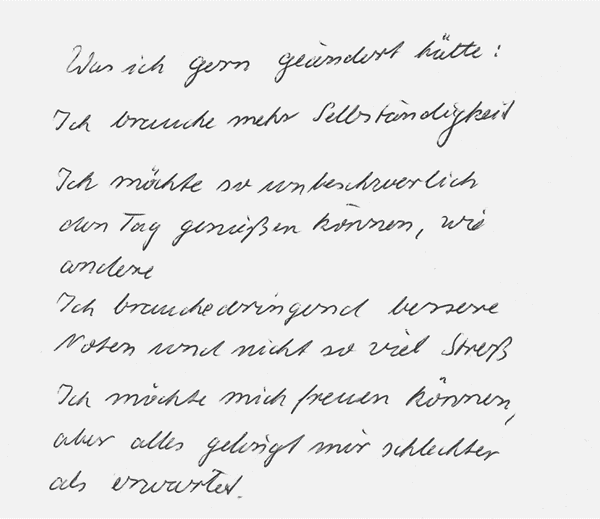 Was ich gern geändert hätte:
Ich brauche mehr Selbständigkeit
Ich möchte so unbeschwerlich
den Tag genießen können, wie
andere
Ich brauche dringend bessere
Noten und nicht so viel Streß
Ich möchte mich freuen können,
aber alles gelingt mir schlechter
als erwartet.